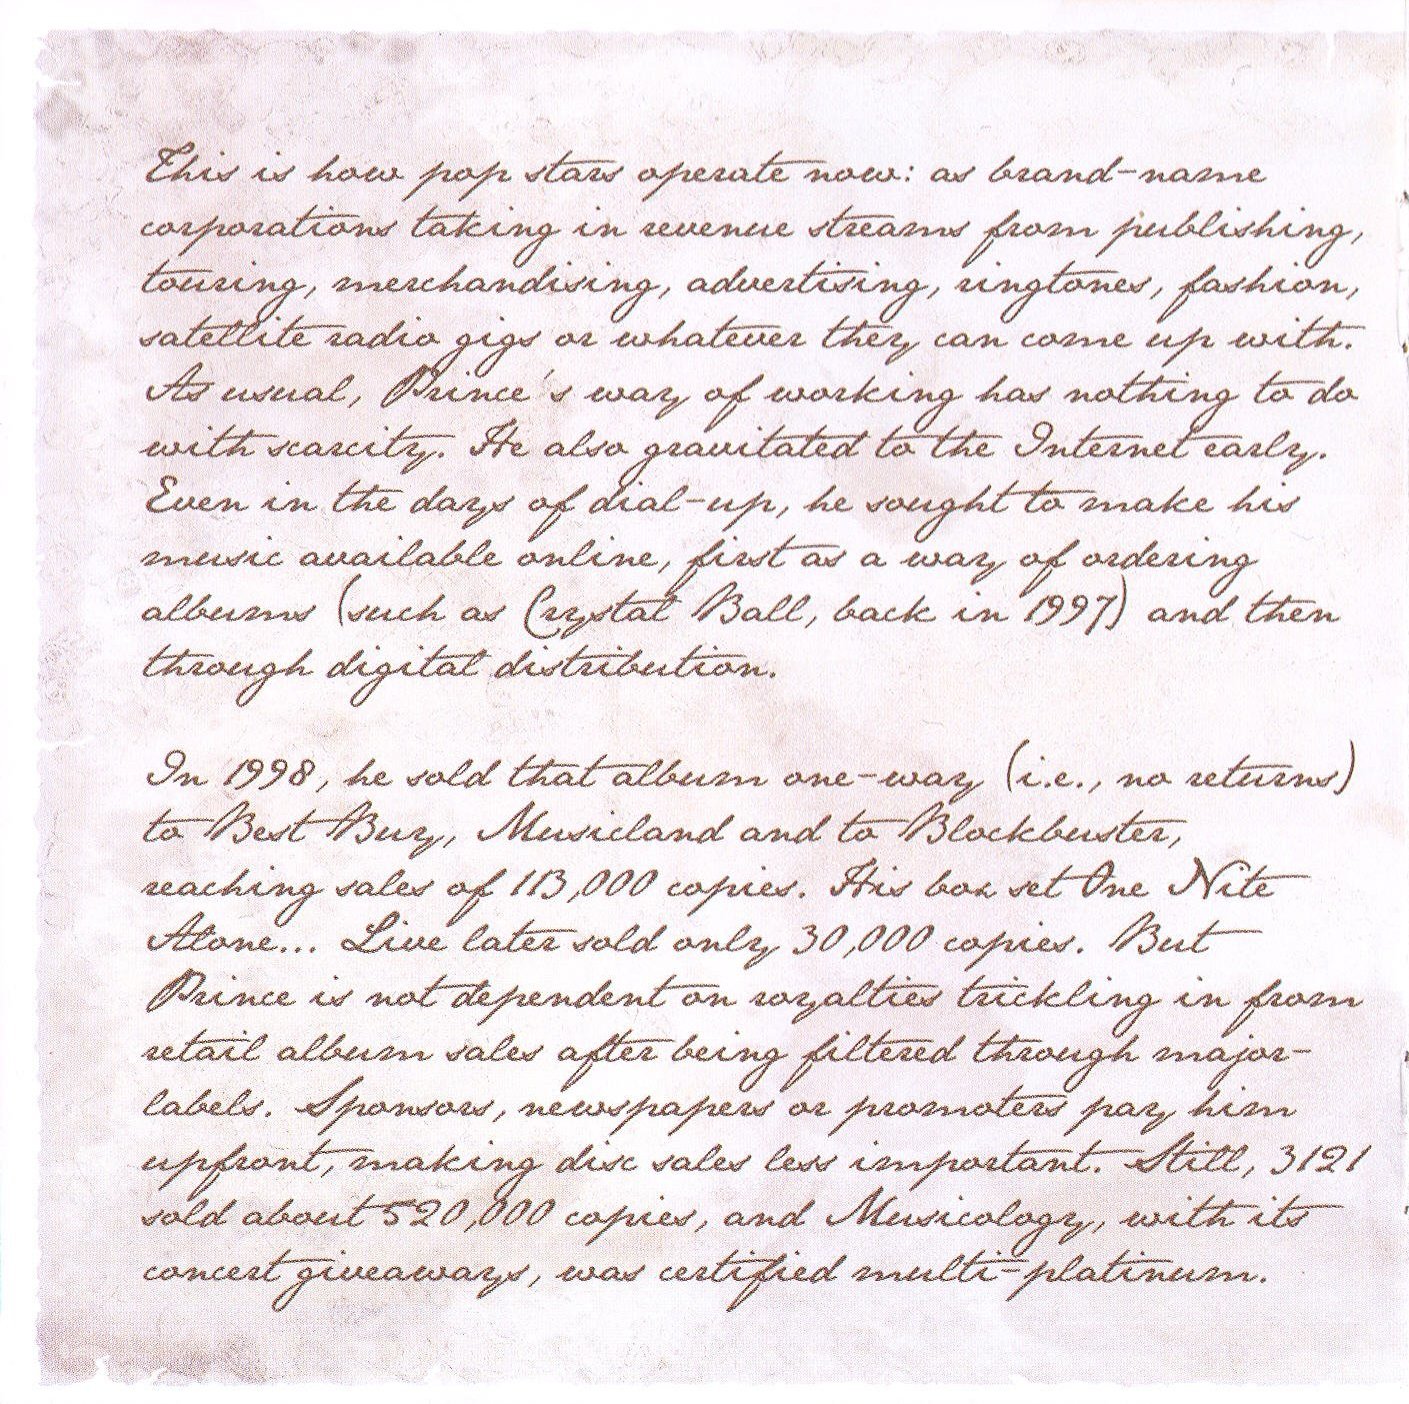 This is how pop stars operate now: as brand-name
corporations taking in revenue streams from publishing,
touring, merchandising, advertising, ringtones, fashion,
satellite radio gigs or whatever they can come up with.
As usual, Prince's way of working has nothing to do
with scarcity. He also gravitated to the Internet early.
Even in the days of dial-up, he sought to make his
music available online, first as a way of ordering
albums (such as Crystal Ball, back in 1997) and then
through digital distribution.

In 1998, he sold that album one-way (i.e., no returns)
to Best Buy, Musicland and to Blockbuster,
reaching sales of 113,000 copies. His box set One Nite
Alone... Live later sold only 30,000 copies. But
Prince is not dependent on royalties trickling in from
retail album sales after being filtered through major-
labels. Sponsors, newspapers or promoters pay him
upfront, making disc sales less important. Still, 3121
sold about 520,000 copies, and Musicology, with its
concert giveaways, was certified multi-platinum.